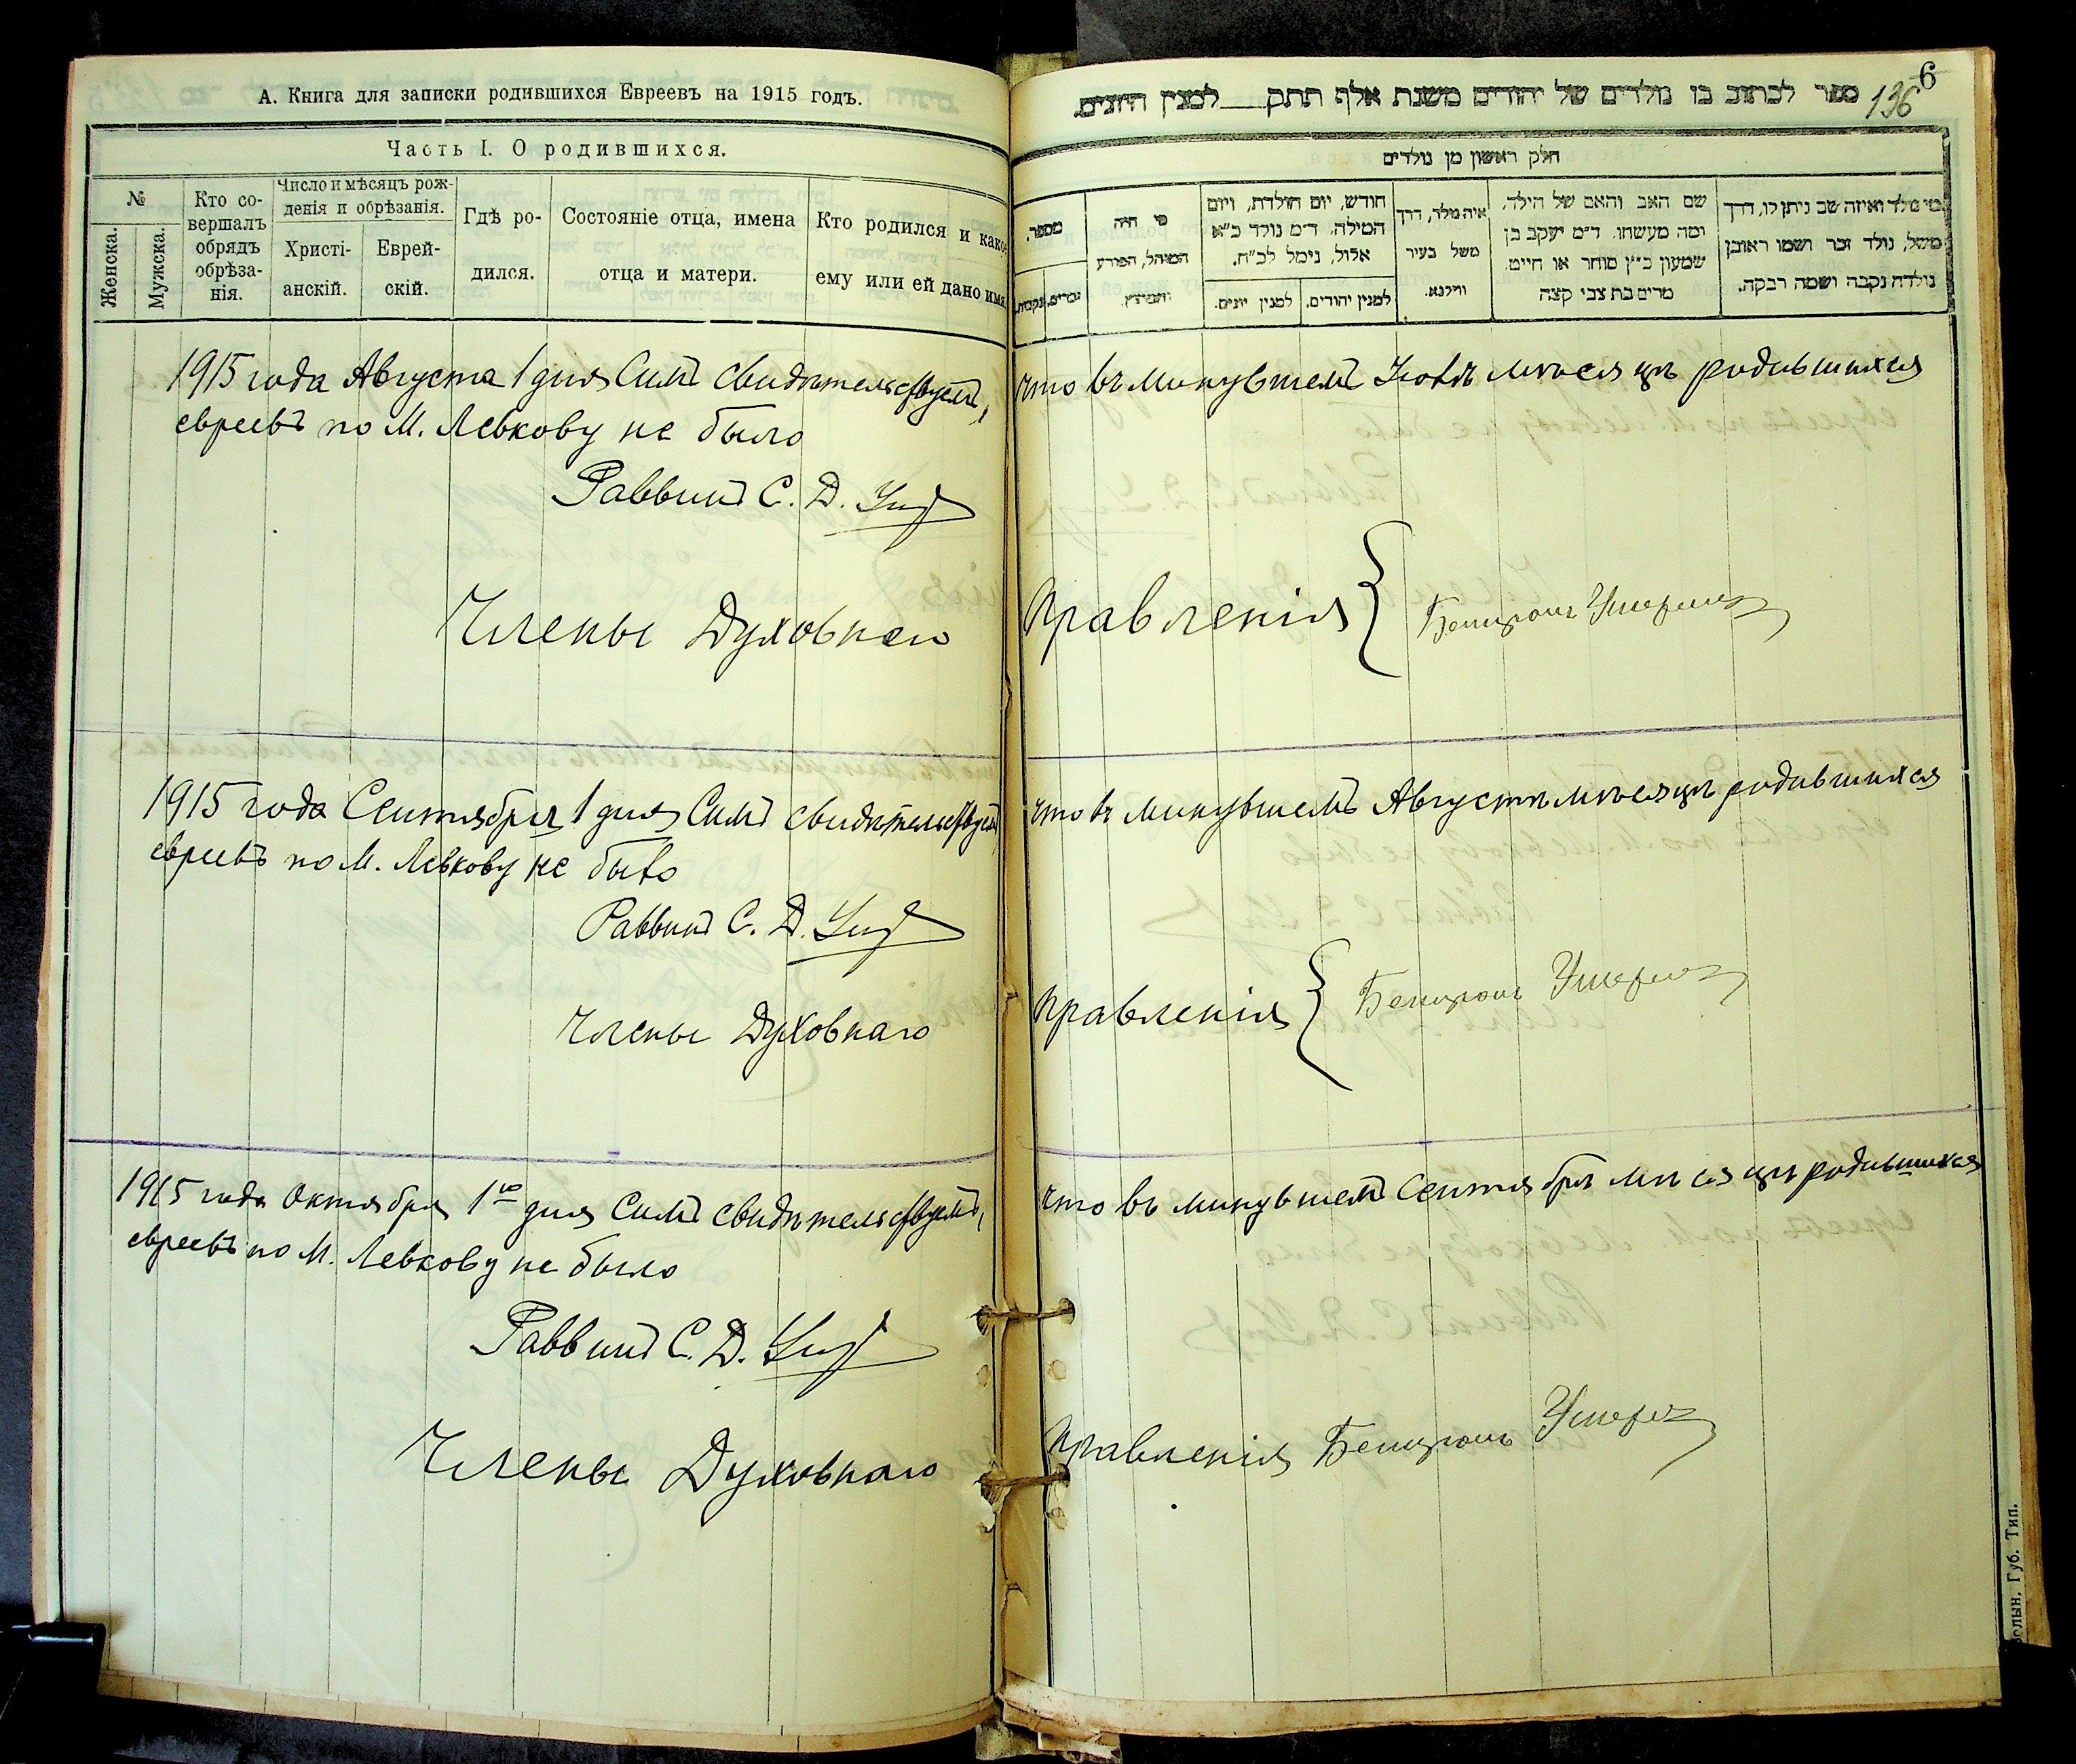 А. Книга для записки родившихся Евреевъ на 1915 годъ.
Часть I. О родившихся.
№
Женска.
Мужска.
Кто со-
вершалъ
обрядъ
обрѣза-
нія.
Число и мѣсяцъ рож-
денія и обрѣзанія.
Христі-
анскій.
Еврей-
скій.
Гдѣ ро-
дился.
Состояніе отца, имена
отца и матери.
Кто родился и какое
ему или ей дано имя.
1915 года Августа 1 дня Симъ свидѣтельствуемъ,
евреевъ по М. Левкову не было
Раввинъ С. Д.
Члены Духовнаго
1915 года Сентября 1 дня Симъ свидѣтельствуемъ
евреевъ по М. Левкову не было
Раввинъ С. Д.
Члены Духовнаго
1915 года Октября 1го дня Симъ свидѣтельствуемъ,
евреевъ по М. Левкову не было
Раввинъ С. Д.
Члены Духовнаго
6
136
ספר לכתוב בו נולדים של יהודים משנת אלף תתק___למנין היונים.
חלק ראשון מן נולדים
מספר.
זכרים.
נקבות.
מי היה
המוהל, הפורע
והמוצץ.
חודש, יום הולדת, ויום
המילה. ד״מ נולד כ״א
אלול, נימל לכ״ח.
למנין יהודים.
למנין יונים.
איה מלד, דרך
משל בעיר
ווילנא.
שם האב והאם של הילד.
ומה מעשהו. ד״מ יעקב בן
שמעון כ״ץ סוחר או חייט.
מרים בת צבי קצה
מי נולד ואיזה שב ניתן לו, דרך
משל, נולד זכר ושמו ראובן
נולדה נקבה ושמה רבקה.
что въ минувшемъ Іюлѣ мѣсяцѣ родившихся
Правленія
что въ минувшемъ Августѣ мѣсяцѣ родившихся
Правленія
что въ минувшемъ Сентябрѣ мѣсяцѣ родившихся
Правленія
Волын. Губ. Тип.